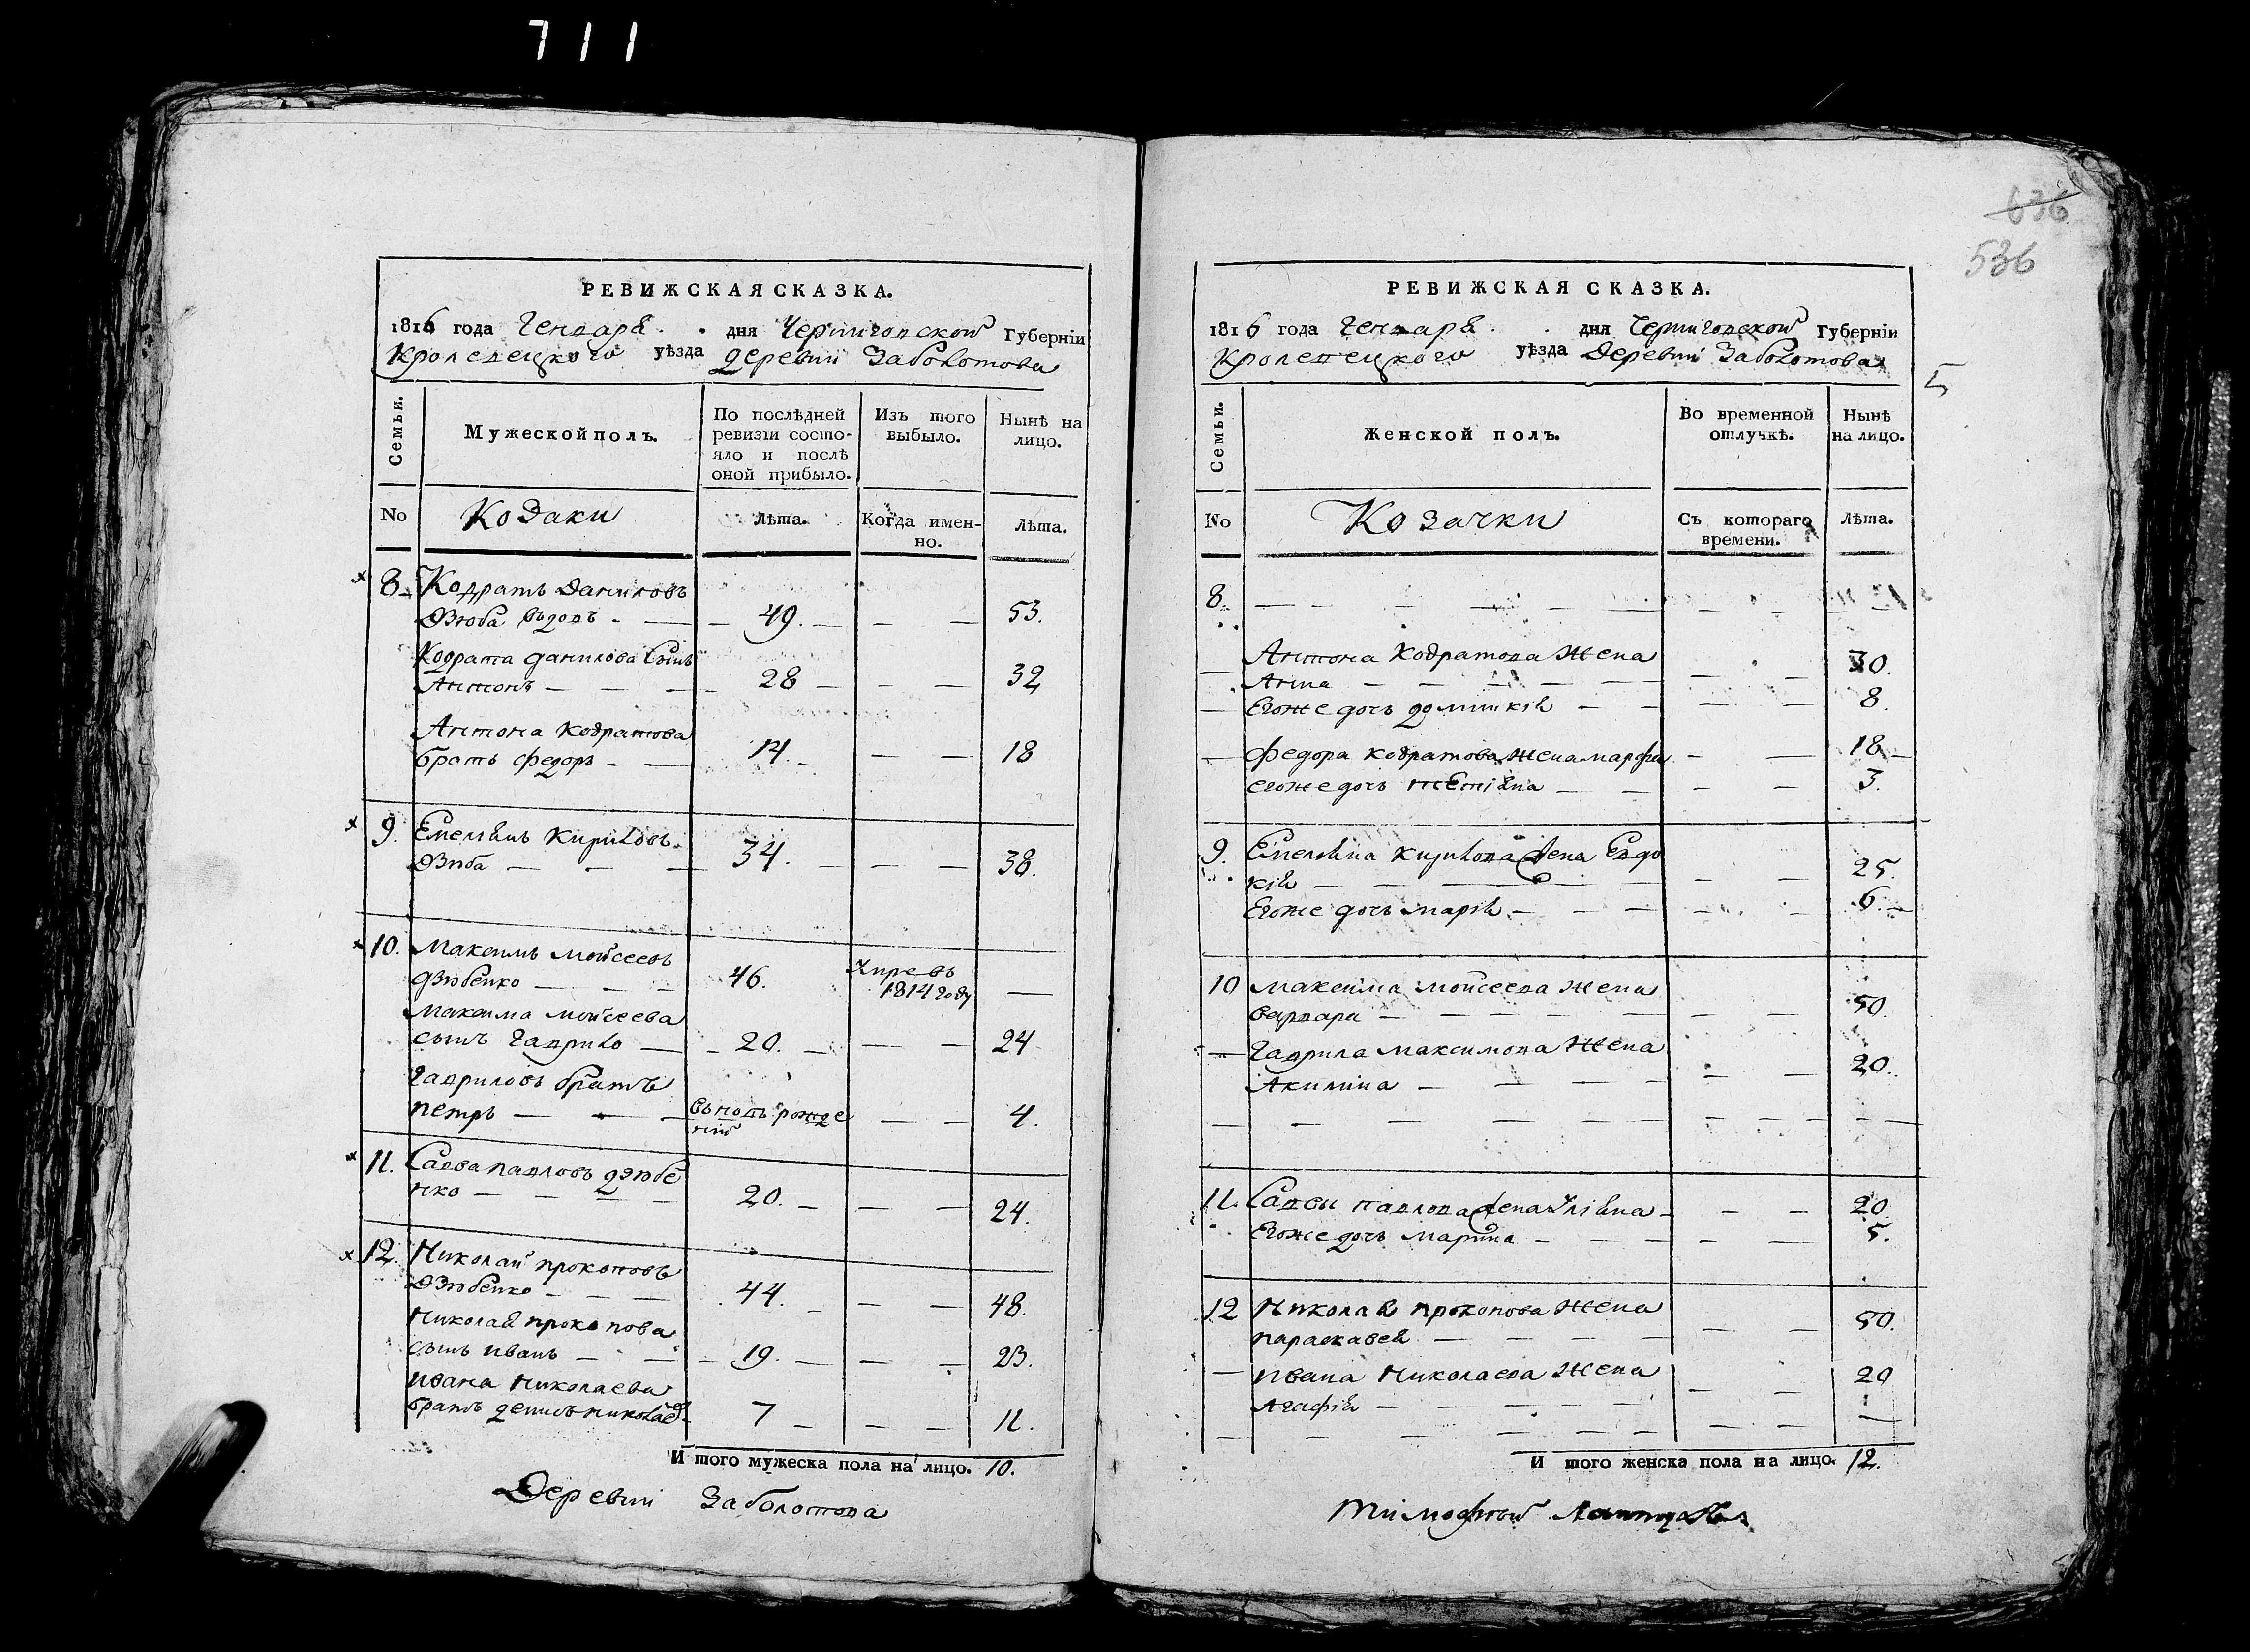 711
636
536
5
РЕВИЖСКАЯ СКАЗКА.
1816 года Генваря . дня Черниговской Губерніи
Кролевецкого уѣзда деревни Заболотова
Семьи.
Мужеской полъ.
По послѣдней
ревизіи состо-
яло и послѣ
оной прибыло.
Изъ того
выбыло.
Нынѣ на
лицо.
No
Козаки
лѣта.
Когда имен-
но.
лѣта.
8. Кодратъ Даниловъ
Дзюба вдовъ 49. 53.
Кодрата Данилова сынъ
Антонъ 28 32
Антона Кодратова
братъ Федоръ 14. 18
9. Емелянъ Кириловъ
Дзюба 34. 38.
10. Максимъ Мойсеевъ
Дзюбенко 46. Умре въ
1814 году
Максима Мойсеева
сынъ Гаврило 20. 24
Гавриловъ братъ
Петръ въ новь рожде
ній 4.
11. Савва Павловъ Дзюбе
нко 20. 24.
12. Николай Прокоповъ
Дзюбенко 44. 48.
Николая Прокопова
сынъ Иванъ 19. 23.
Ивана Николаева
братъ Денисъ Николаев 7 11.
И того мужеска пола на лицо. 10.
Деревни Заболотова
РЕВИЖСКАЯ СКАЗКА.
1816 года Генваря . дня Черниговской Губерніи
Кролевецкого уѣзда Деревни Заболотова
Семьи.
Женской полъ.
Во временной
отлучкѣ.
Нынѣ
на лицо.
No
Козачки
Съ котораго
времени.
лѣта.
8.
Антона Кодратова жена
Анна 30.
Егоже дочь Домникія 8.
Федора Кодратова жена Марфа 18
егоже дочь 3.
9. Емеляна Кирилова жена Евдо
кія 25.
Егоже дочь Марія 6.
10 Максима Мойсеева жена
Варвара 50.
Гаврила Максимова жена
Акилина 20.
11. Саввы Павлова жена Уліяна 20.
Егоже дочь Марина 5.
12 Николая Прокопова жена
Параскавея 50.
Ивана Николаева жена
Агафія 20
И того женска пола на лицо. 12.
Тимофѣй